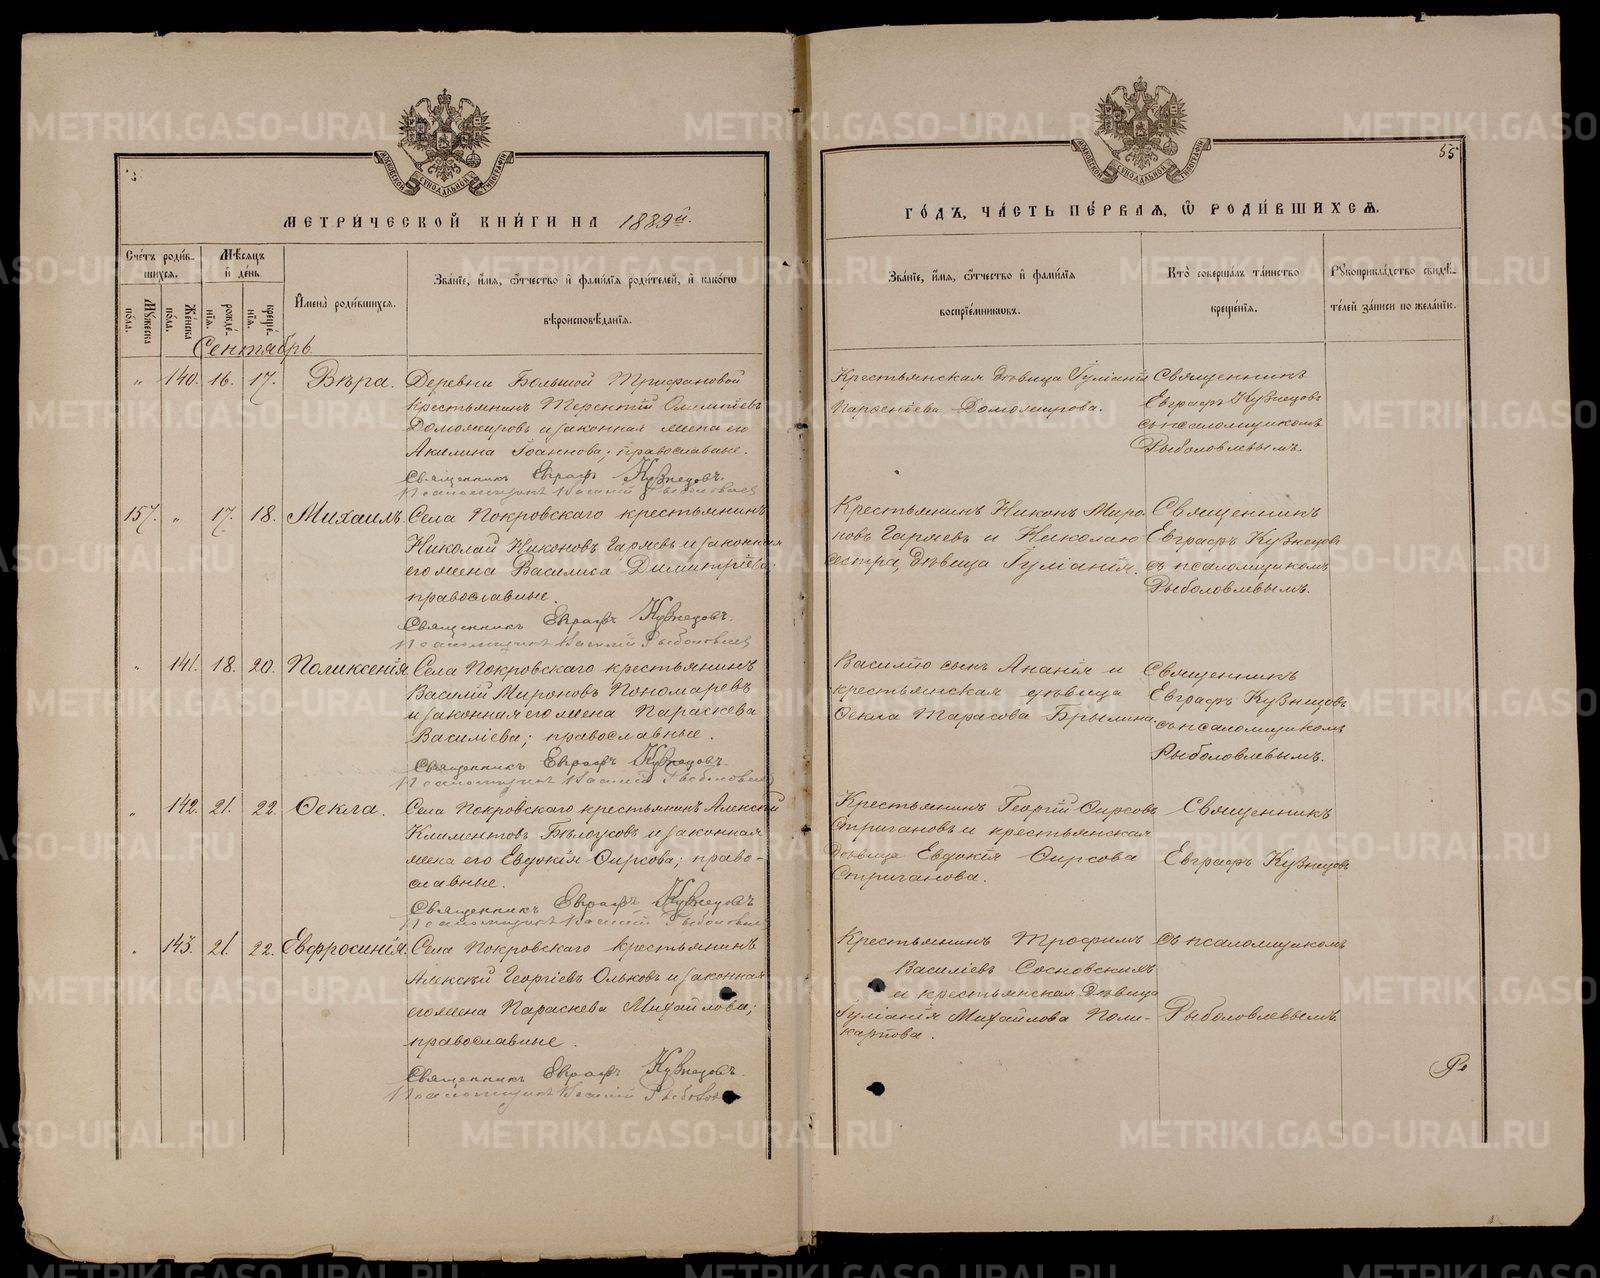 МЕТРИЧЕСКОЙ КНИГИ НА 1889й.
Счетъ родив-
шихся.
Мѣсяцъ
и день
Мужеска
пола.
Женска
пола.
рожде-
нія.
креще-
нія.
Имена родившихся.
Званіе, имя, отчество и фамилія родителей, и какого
вѣроисповѣданія.
Сентябрь
" 140. 16. 17. Вѣра. Деревни Большой Трифановой
крестьянинъ Терентій Олимпіевъ
Доможировъ и законная жена его
Акилина Іоаннова; православные.
Священникъ Евграфъ Кузнецовъ.
Псаломщикъ Василій Рыболовлевъ
157. " 17. 18. Михаилъ. Села Покровскаго крестьянинъ
Николай Никоновъ Гаряевъ и законная
его жена Василиса Димитріева;
православные.
Священникъ Евграфъ Кузнецовъ.
Псаломщикъ Василій Рыболовлевъ
" 141. 18. 20. Поликсенія Села Покровскаго крестьянинъ
Василій Мироновъ Пономаревъ
и законная его жена Параскева
Василіева; православные.
Священникъ Евграфъ Кузнецовъ.
Псаломщикъ Василій Рыболовлевъ
" 142. 21. 22. Ѳекла. Села Покровскаго крестьянинъ Алексѣй
Климентовъ Бѣлоусовъ и законная
жена его Евдокія Ѳирсова; право-
славные.
Священникъ Евграфъ Кузнецовъ
Псаломщикъ Василій Рыболовлевъ
" 143. 21. 22. Евфросинія. Села Покровскаго крестьянинъ
Алексѣй Георгіевъ Ольковъ и законная
его жена Параскева Михайлова;
православные.
Священникъ Евграфъ Кузнецовъ.
Псаломщикъ Василій Рыболовлевъ
55
ГОДЪ, ЧАСТЬ ПЕРВАЯ, Ѡ РОДИВШИХСЯ.
Званіе, имя, отчество и фамилія
воспріемниковъ.
Кто совершалъ таинство
крещенія.
Рукоприкладство свидѣ-
телей записи по желанію.
Крестьянская дѣвица Іуліанія
Парѳеніева Доможирова.
Священникъ
Евграфъ Кузнецовъ
съ псаломщикомъ
Рыболовлевымъ.
Крестьянинъ Никонъ Миро-
новъ Гаряевъ и Николаю
сестра, дѣвица Іуліанія.
Священникъ
Евграфъ Кузнецовъ
съ псаломщикомъ
Рыболовлевымъ.
Василію сынъ Ананія и
крестьянская дѣвица
Ѳекла Тарасова Брылина.
Священникъ
Евграфъ Кузнецовъ
съ псаломщикомъ
Рыболовлевымъ.
Крестьянинъ Георгій Ѳирсовъ
Стригановъ и крестьянская
дѣвица Евдокія Ѳирсова
Стриганова.
Священникъ
Евграфъ Кузнецовъ
Крестьянинъ Трофимъ
Василіевъ Сосновскихъ
и крестьянская дѣвица
Іуліанія Михайлова Поли-
карпова.
съ псаломщикомъ
Рыболовлевымъ.
METRIKI.GASO-URAL.RU